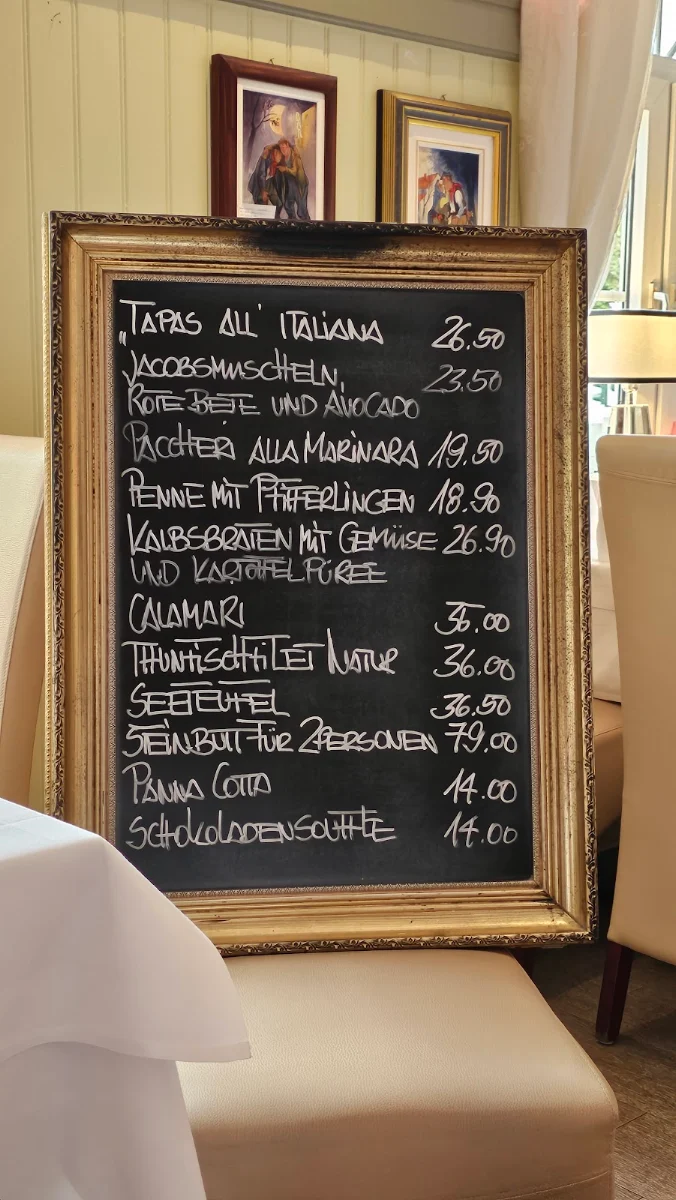 „Tapas all' Italiana 26.50
Jacobsmuscheln, 23.50
Rote Bete und Avocado
Paccheri alla Marinara 19.50
Penne mit Pfifferlingen 18.90
Kalbsbraten mit Gemüse 26.90
und Kartoffelpüree
Calamari
Thunfischfilet Natur 36.00
Seeteufel 36.50
Steinbutt für 2 Personen 79.00
Panna Cotta 14.00
Schokoladensouffle 14.00